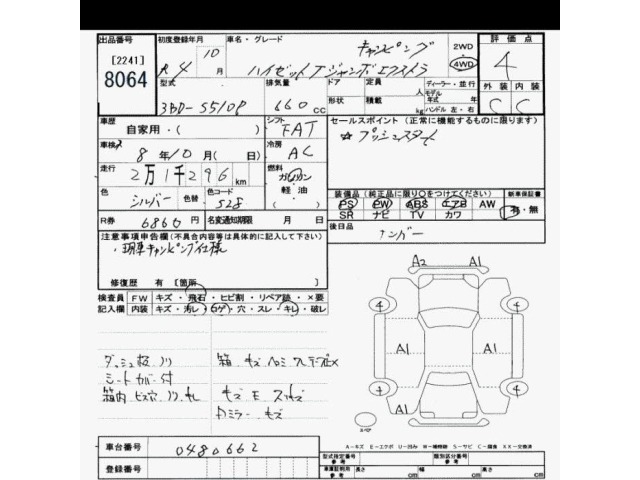 出品番号 初度登録年月 車名・グレード 評価点
[2241] R4 10月 キャンピング 2WD 4
8064 ハイゼットTジャンボエクストラ 4WD
型式 排気量 ドア 定員 ディーラー・並行 外装 内装
3BD-S510P 660cc 形状 積載 人 kg モデル年式 年 ハンドル 左・右 C C
車歴 自家用・( ) シフト FAT セールスポイント (正常に機能するものに限ります)
車検 8年10月(日) 冷房 AC ☆プッシュスタート
走行 2万1千296km 燃料 ガソリン
軽油
色 シルバー 色替 色コード S28 装備品(純正品に限り○をつけてください) 新車保証書
PS PW ABS エアB AW 有・無
SR ナビ TV カワ
R券 6860円 名変通知期限 月 日 後日品 ナンバー
注意事項申告欄(不具合内容等は具体的に記入して下さい)
・現車キャンピング仕様
修復歴 有 [箇所
検査員 FW キズ・飛石・ヒビ割・リペア跡・×要
記入欄 内装 キズ・汚レ・コゲ・穴・スレ・キレ・破レ
ダッシュ板ノリ 箱 キズ ヘコミ
シートカバー付
箱内ビス穴 ノリ キレ キズ E
ミラー キズ
A2 A1
4 4
A1 A1 A1
4 4
A1
スペア
A-キズ E-エクボ U-凹み W-補修跡 S-サビ C-腐食 XX-交換済
車台番号 0480662 型式指定番号 参考 類別区分番号 参考
登録番号 車庫証明用 参考 長さ cm 幅 cm 高さ cm